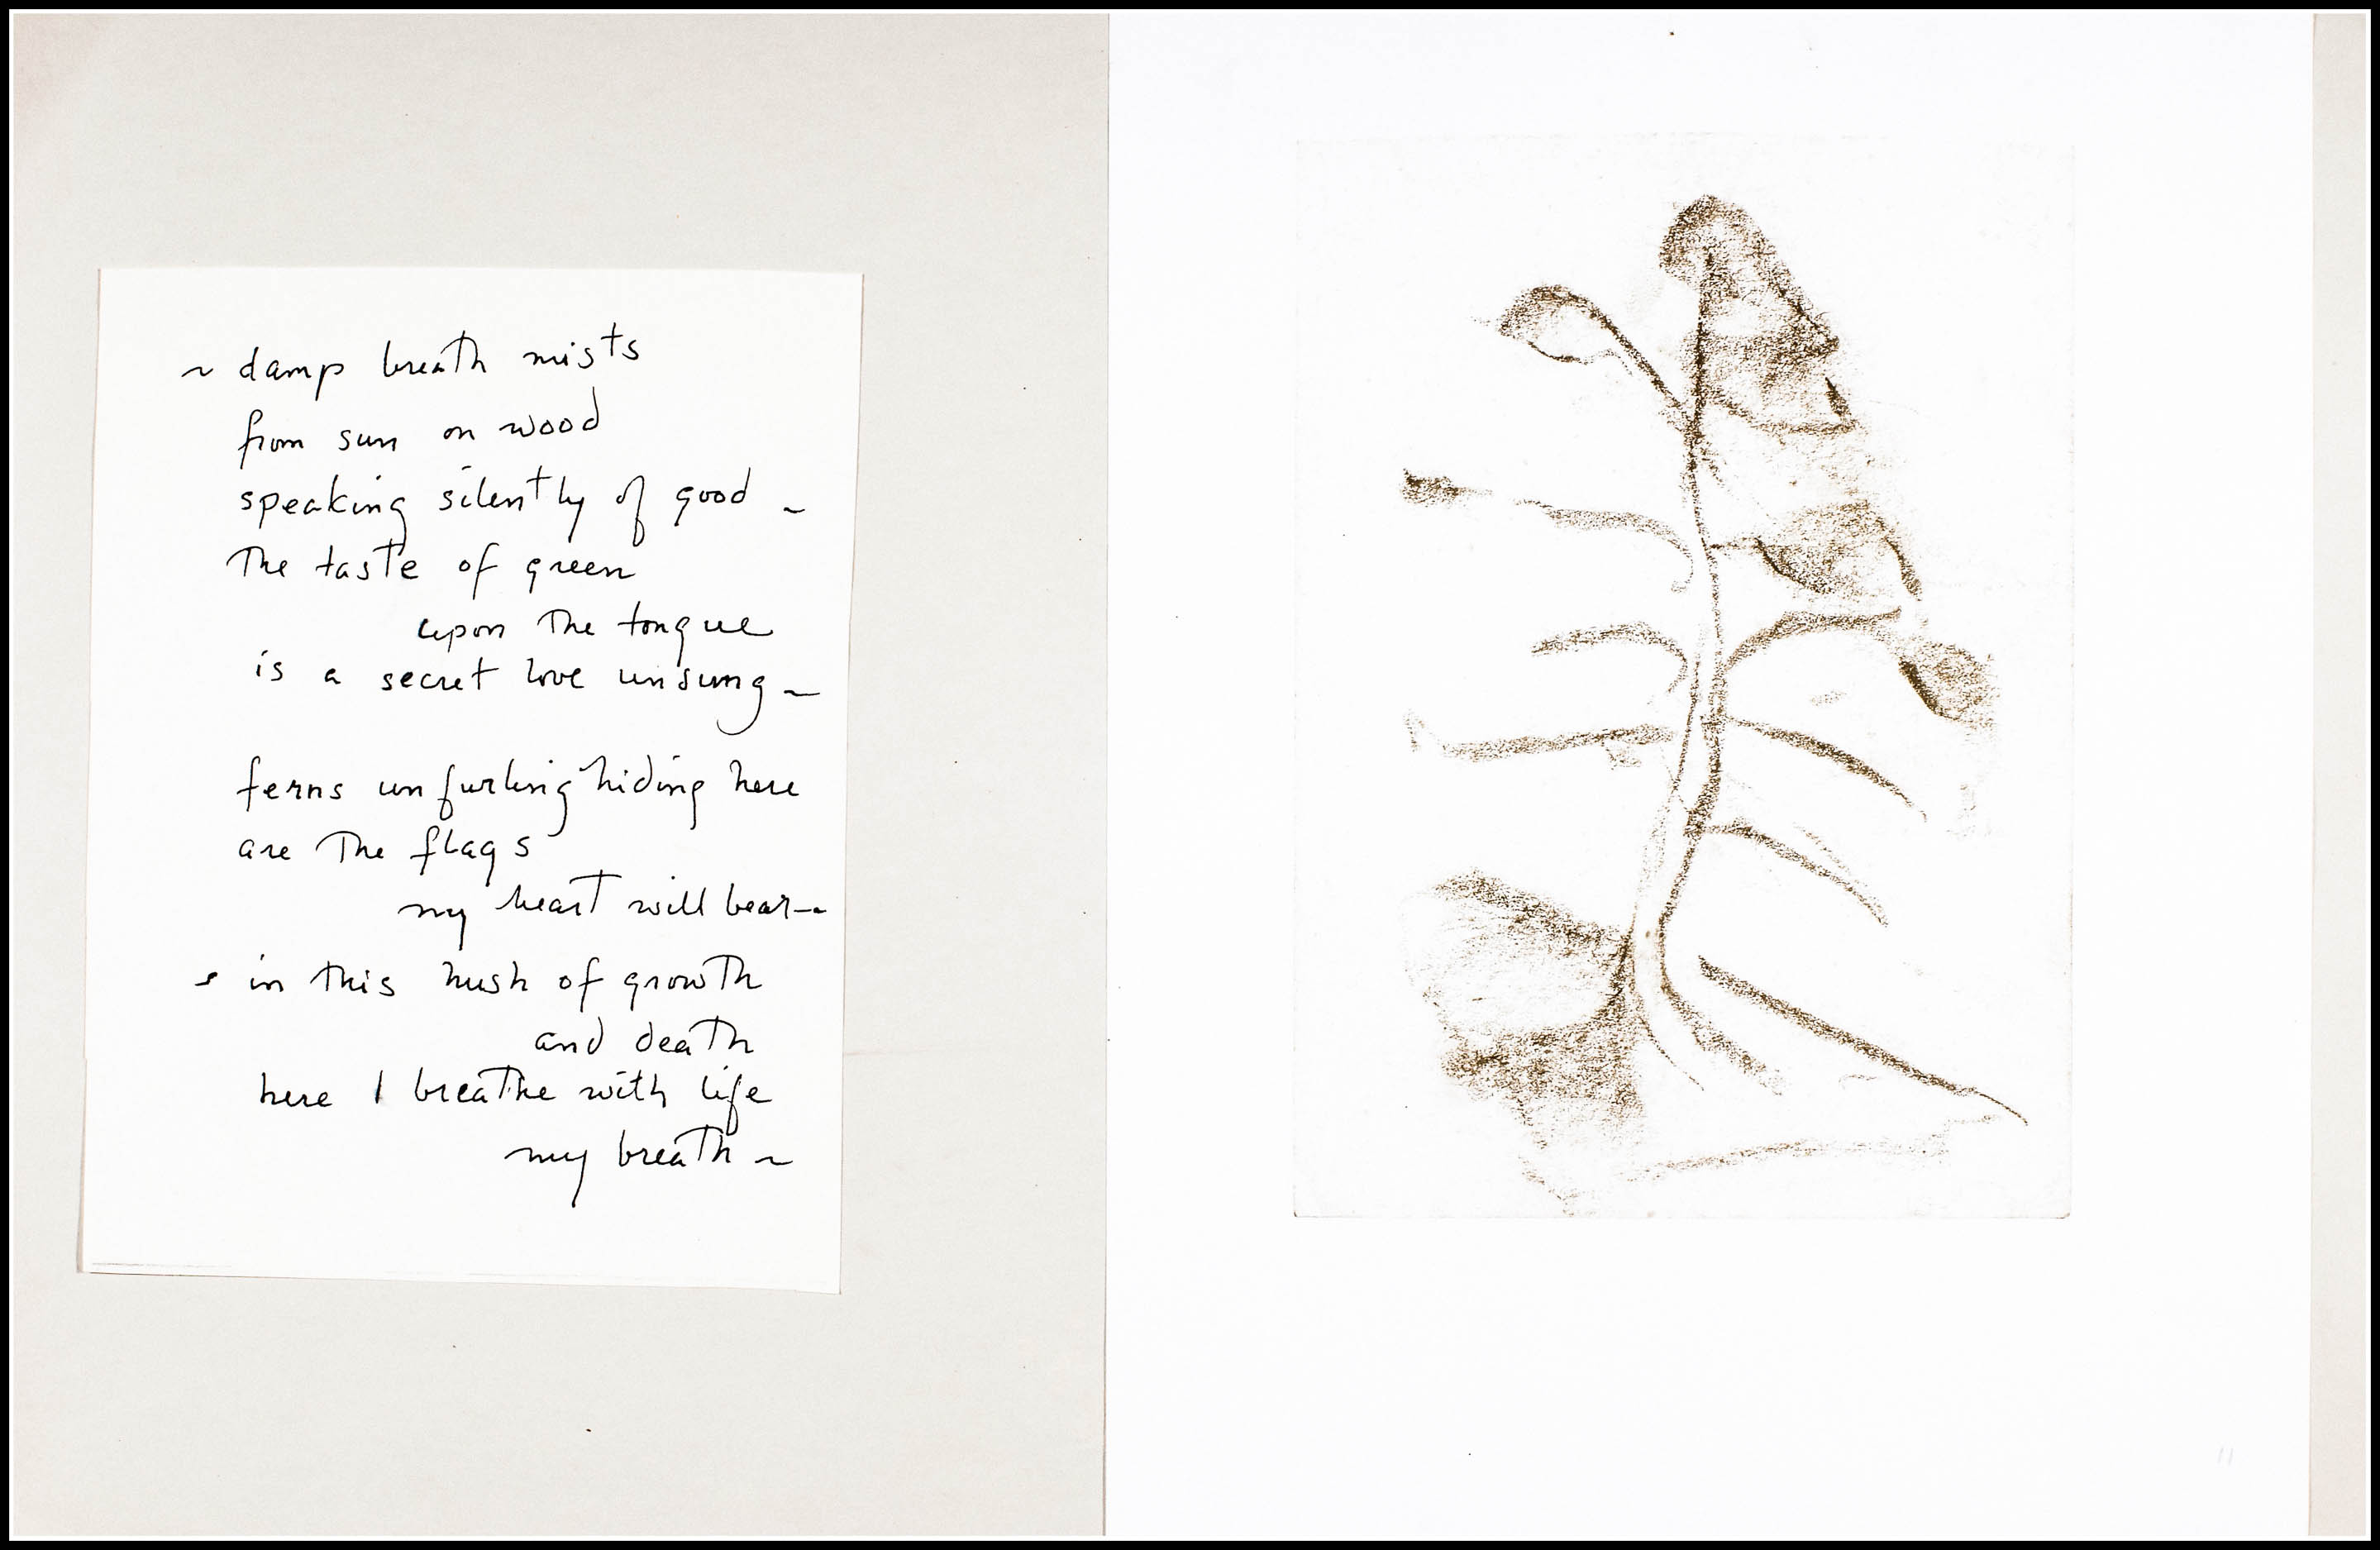 ~ damp breath mists
from sun on wood
speaking silently of good ~
The taste of green
upon The tongue
is a secret love unsung ~
ferns unfurling hiding here
are The flags
my heart will bear ~
~ in this hush of growth
and death
here I breathe with life
my breath ~
11